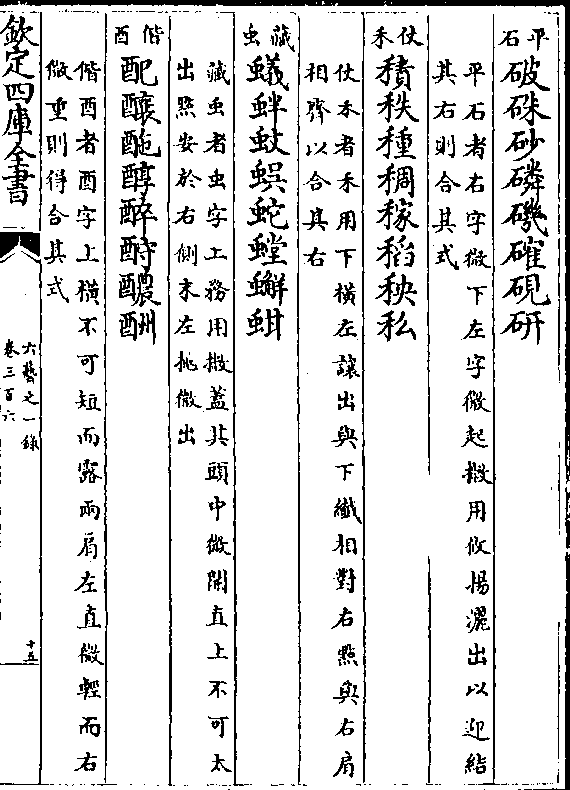 平石
破硃砂磷磯確硯研
平石者右字微下左字微起撇用攸揚灑出以迎結
其右則合其式
仗禾
積秩種稠稼稻秧私
仗禾者禾用下橫左讓出與下纖相對右點與右肩
相齊以合其右
藏虫
蟻蚌蚊蜈蛇螳蠏蚶
藏虫者虫字上務用撇蓋其頭中微開直上不可太
出點安於右側末左挑微出
偕酉
配釀酏醇醉酹醲酬
偕酉者酉字上橫不可短而露兩肩左直微輕而右
微重則得合其式
欽定四庫全書
六藝之一錄
卷三百六
十五